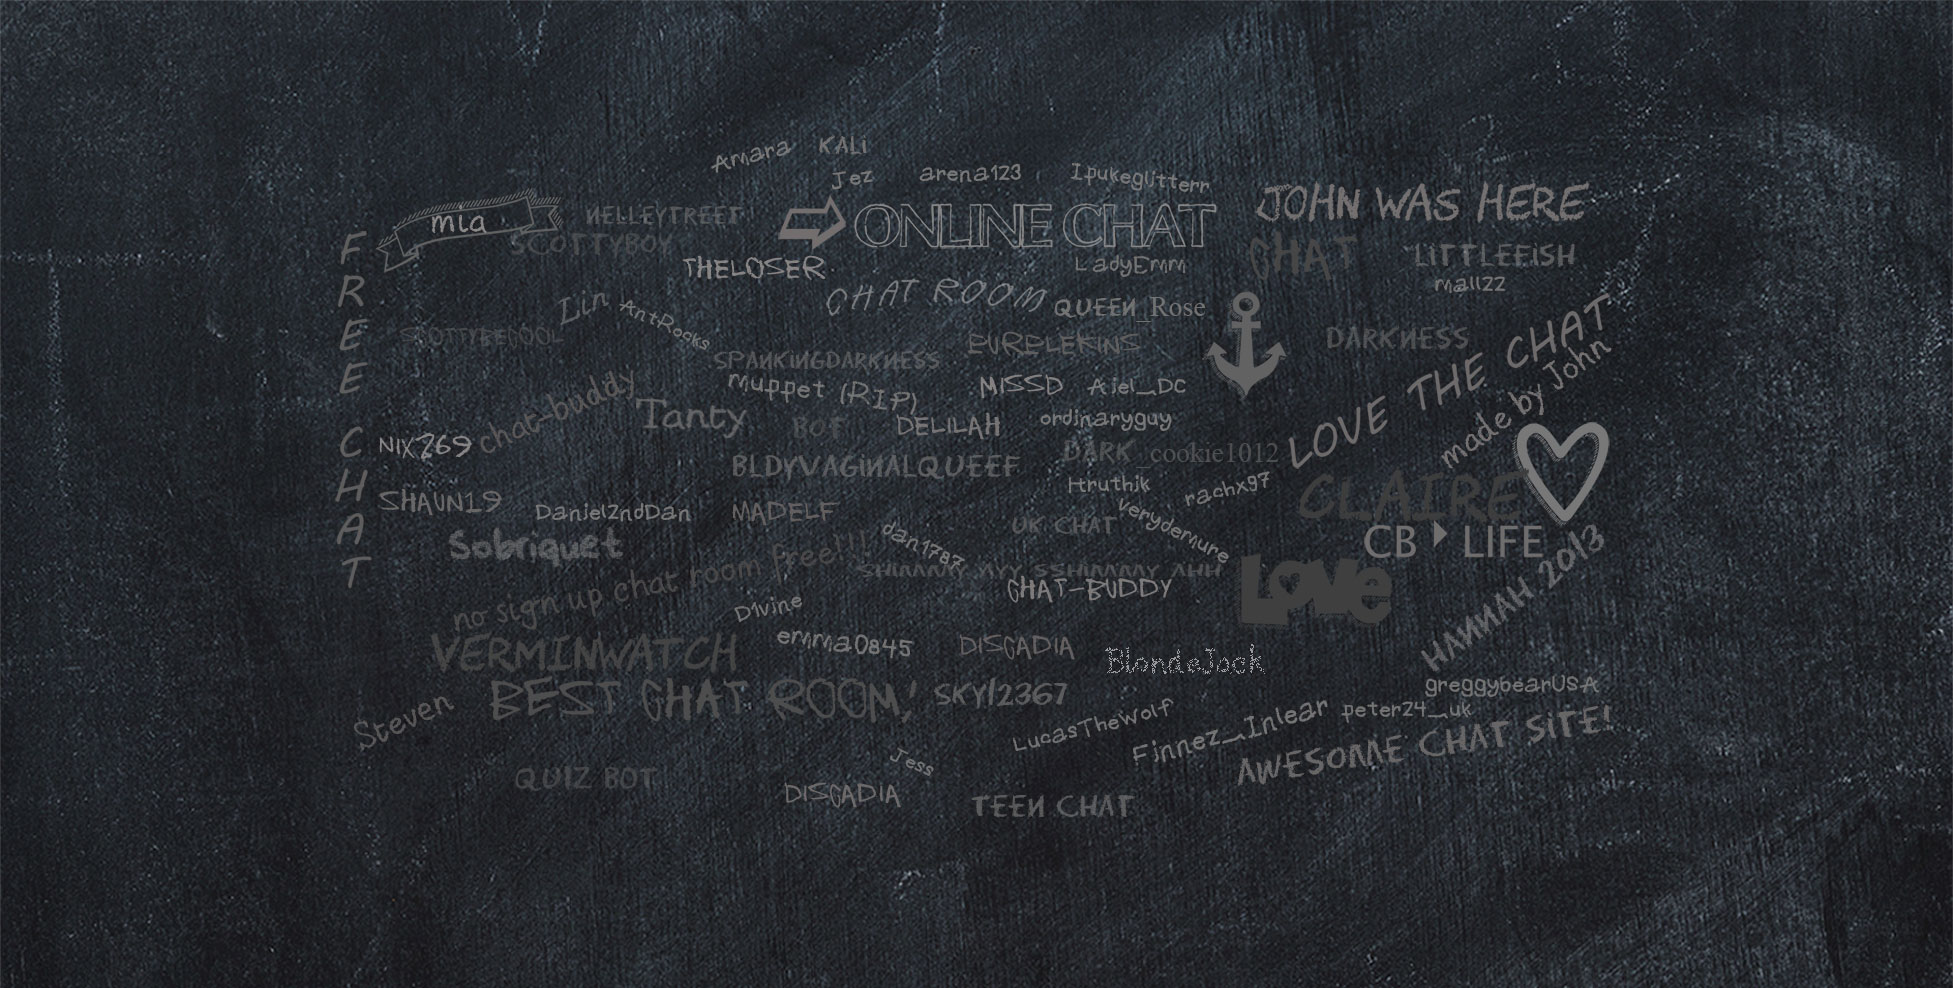 Amara
KALi
Jez
arena123
Ipukeglitterr
JOHN WAS HERE
mia
NELLEYTREET
ONLINE CHAT
SCOTTYBOY
FREE CHAT
CHAT
LITTLEFISH
THELOSER
LadyEmm
mallzz
CHAT ROOM
QUEEN_Rose
Lin
AntRocks
SCOTTYBECOOL
PURPLEKINS
DARKNESS
SPANKiNGDARKNESS
LOVE THE CHAT
made by John
muppet (RIP)
MISSD
Aiel_DC
chat-buddy
Tanty
BOT
DELILAH
ordinaryguy
NIX269
DARK_cookie1012
BLDYVAGINALQUEEF
Htruthik
rachx97
CLAIRE
SHAUN19
Daniel2ndDan
MADELF
UK CHAT
verydemure
CB LIFE
Sobriquet
dan1787
no sign up chat room free!!!
SHIMMY AYY SSHIMMAY AHH
CHAT-BUDDY
LOVE
HANNAH 2013
D1vine
VERMINWATCH
emma0845
DISCADIA
BlondeJock
BEST CHAT ROOM!
SKY12367
greggybearUSA
Steven
LucasTheWolf
Finnez_Inlear
peter24_uk
AWESOME CHAT SITE!
Jess
QUIZ BOT
DISCADIA
TEEN CHAT